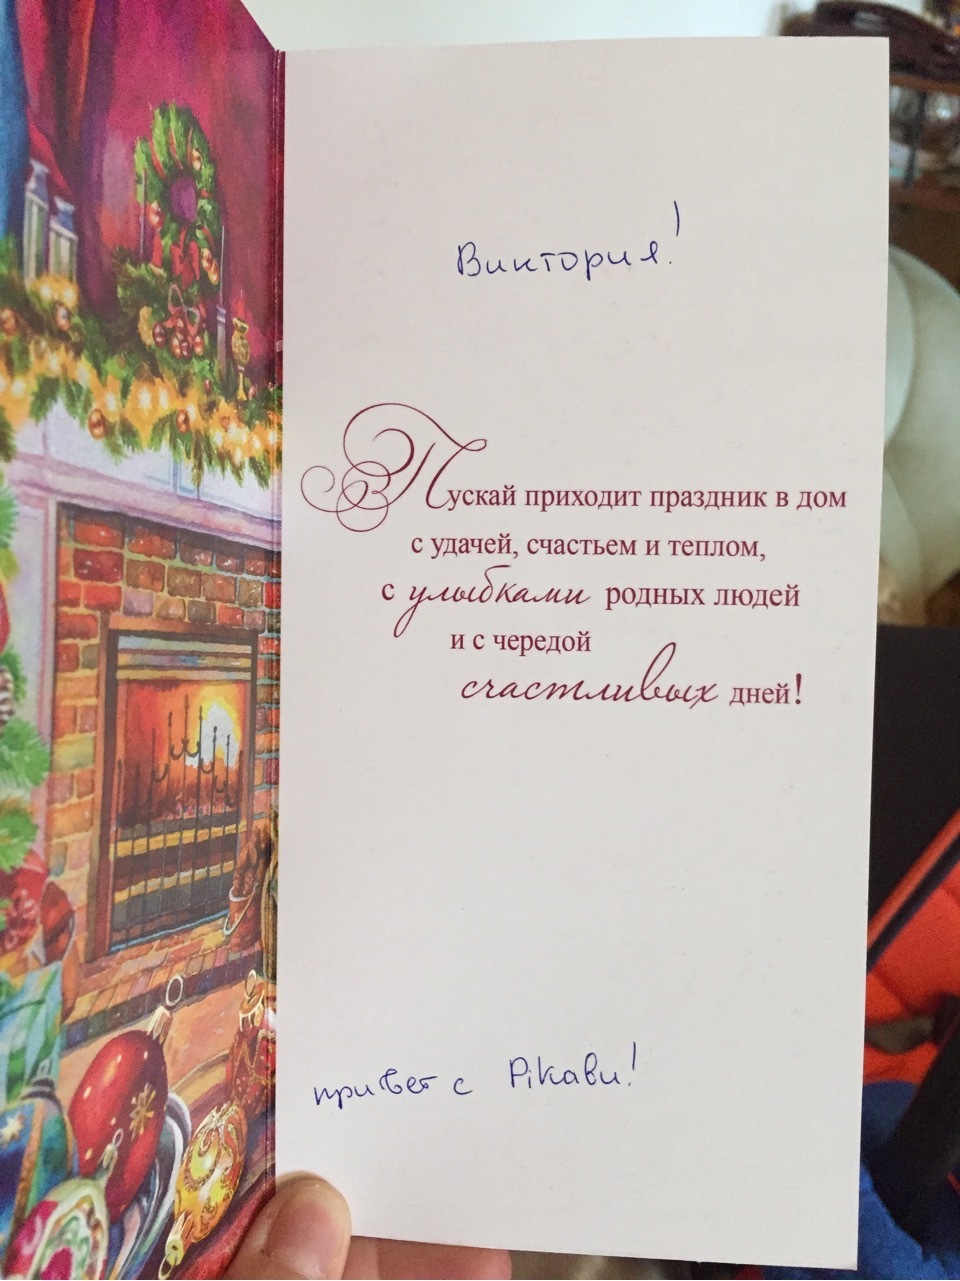 Виктория!
Пускай приходит праздник в дом
с удачей, счастьем и теплом,
с улыбками родных людей
и с чередой
счастливых дней!
привет с Pikaви!